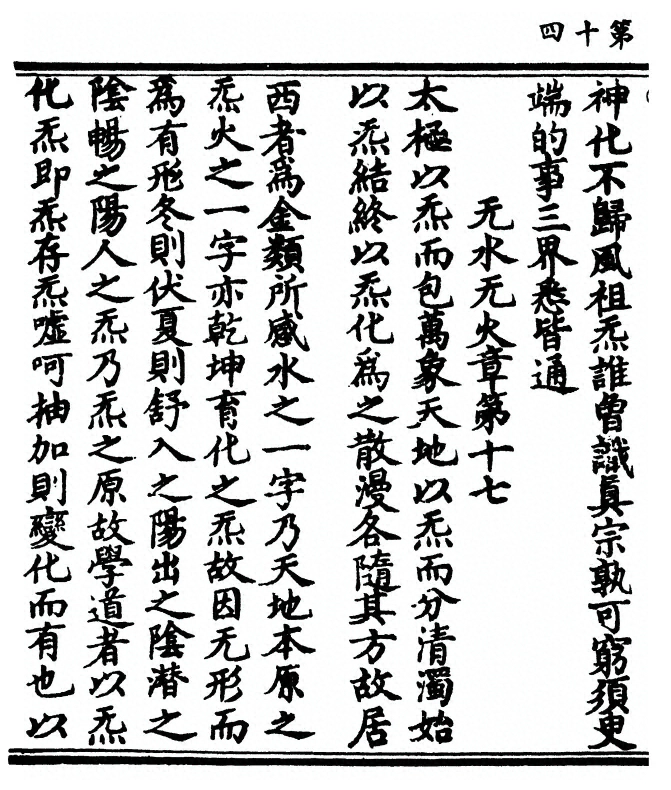 第十四
神化不歸風祖炁誰曾識真宗孰可窮須更
端的事三界悉皆通
无水无火章第十七
太極以炁而包萬象天地以炁而分清濁始
以炁結終以炁化為之散漫各隨其方故居
西者為金類所感水之一字乃天地本原之
炁火之一字亦乾坤育化之炁故因无形而
為有形冬則伏夏則舒入之陽出之陰潛之
陰暢之陽人之炁乃炁之原故學道者以炁
化炁即炁存炁噓呵抽加則變化而有也以